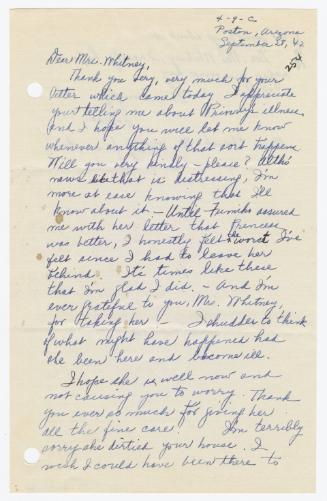 4-9-C
Poston, Arizona
September 28, '42
254
Dear Mrs. Whitney,
Thank you very, very much for your
letter which came today. I appreciate
your telling me about Prinny's illness,
and I hope you will let me know
whenever anything of that sort happens.
Will you very kindly - please? Altho'
news that is distressing, I'm
more at ease knowing that I'll
know about it - Until Fumiko assured
me with her letter that Princess
was better, I honestly felt the worst I've
felt since I had to leave her
behind. It's times like these
that I'm glad I did. - And I'm
ever grateful to you, Mrs. Whitney,
for taking her. - I shudder to think
of what might have happened had
she been here and become ill.
I hope she is well now and
not causing you to worry. Thank
you ever so much for giving her
all the fine care. I'm terribly
sorry she dirtied your house. I
wish I could have been there to